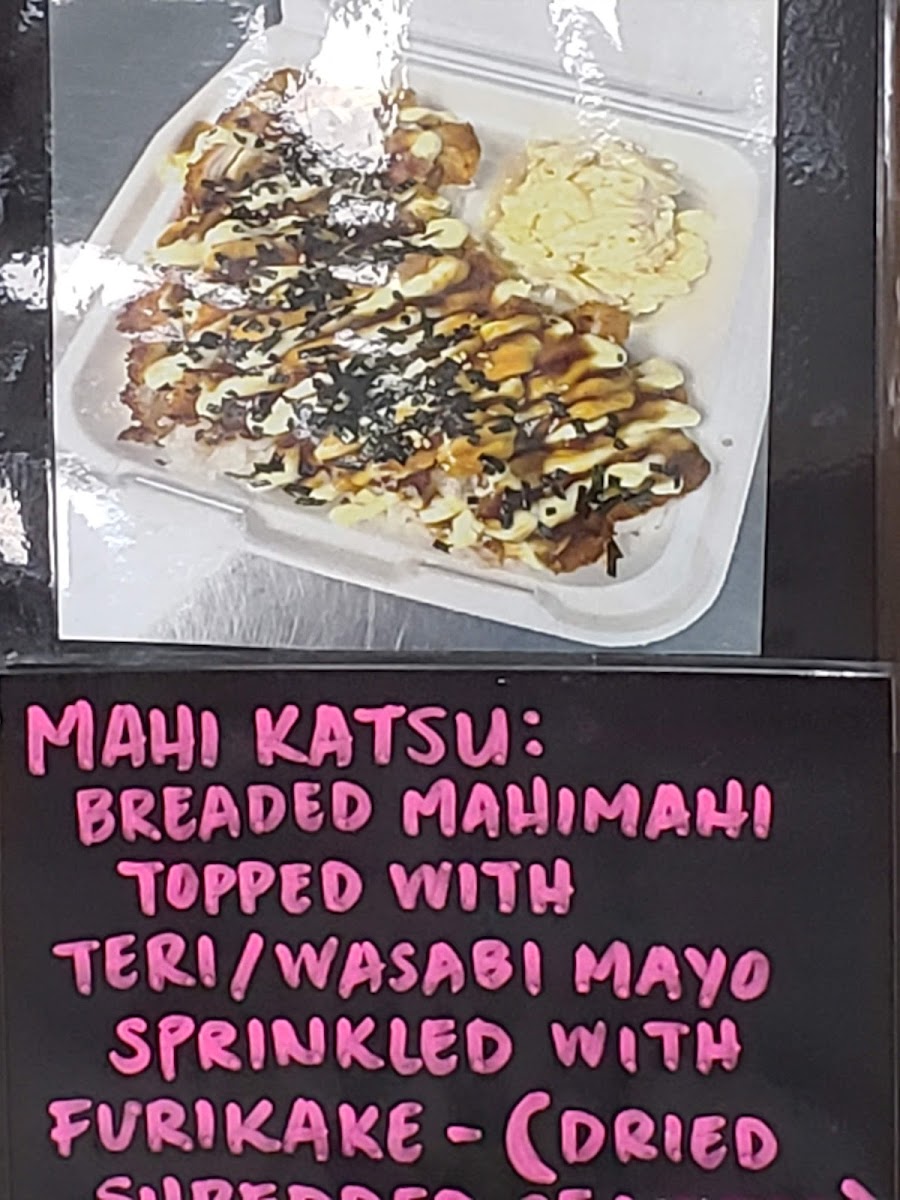 MAHI KATSU:
BREADED MAHIMAHI
TOPPED WITH
TERI/WASABI MAYO
SPRINKLED WITH
FURIKAKE - (DRIED
SHREDDED